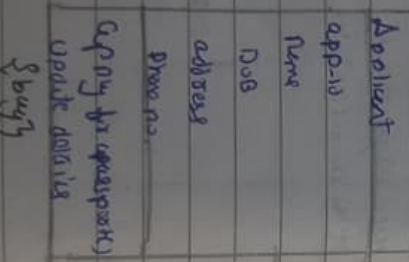 Applicent
app-id
neme
DoB
address
Phno no.
apply for passport()
update details